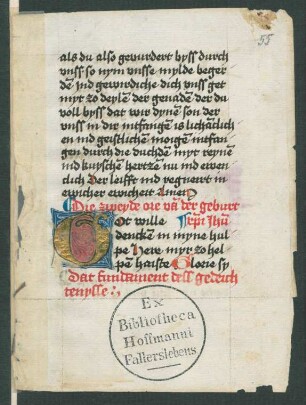 55
als du also gewurdert byss durch
vnss so nym vnsse mylde beger
dē ind gewirdiche dich vnss get
myr zo deylē der genadē der du
voll byss dat wir dynē son der
vnss in dir intfangē is lichālich
en ind geistlichen moigē intfan
gen durch die duchdē myr reynē
ind kuyschē hertzē nu ind ewen
clich Der leifft ind regneirt in
ewicher ewicheit Amen
Die zweyde oie vā der geburt
Got wille
denckē in myne hul
pe Here myr zo hel
pē haiste Glorie sy
Dat fundament dess gedeuch
tenysse
Ex
Bibliotheca
Hoffmanni
Fallerslebens